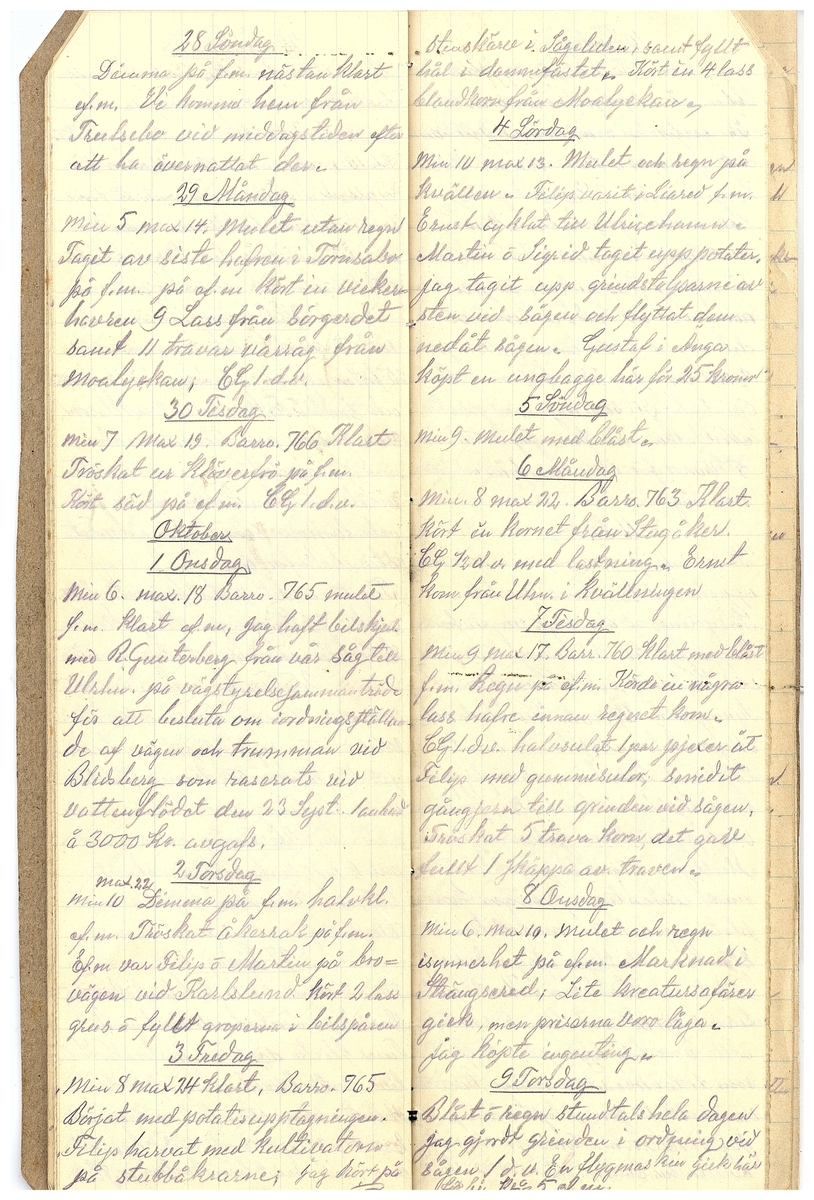 28 Söndag
Dimma på f.m. nästan klart
ef.m. Vi kommo hem från
vid middagstiden efter
att ha övernattat der.
29 Måndag
Min 5 max 14. Mulet utan regn
Taget av siste hafren i
på f.m. på ef.m kört in vicker-
havren 9 Lass från
samt 11 travar vårråg från
Moalyckan; CG 1 d.v.
30 Tisdag
Min 7 Max 19. Barro. 766 Klart
Tröskat ur Klöverfrö på f.m.
Kört säd på ef.m. CG 1 d.v.
Oktober
1 Onsdag
Min 6. max. 18 Barro. 765 mulet
f.m. klart ef.m, jag haft bilskjuts
med R. från vår såg till
Ulrhn. på vägstyrelsesammanträde
för att besluta om iordningställan-
de af vägen och trumman vid
Blidsberg som raserats vid
vattenflödet den 23 Sept. 1 anbud
á 3000 Kr. avgafs.
2 Torsdag
max. 22
Min 10 Dimma på f.m. halvkl.
ef.m. Tröskat åkerrak på f.m.
Ef.m var Filip o Martin på bro=
vägen vid Karlslund kört 2 lass
grus o fyllt groperna i bilspåren
3 Fredag
Min 8 max 24 klart, Barro. 765
Börjat med potatisupptagningen.
Filip harvat med kultivatorn
på stubbåkrarne; jag kört på
stenskärv i Sågeliden, samt fyllt
hål i dammfästet. Kört in 4 lass
blandkorn från Moalyckan.
4 Lördag
Min 10 max 13. Mulet och regn på
kvällen. Filip varit i Liared f.m.
Ernst cyklat till Ulricehamn.
Martin o Sigrid taget upp potater.
jag tagit upp grindstolparne av
sten vid sågen och flyttat dem
nedåt sågen. Gustaf i Änga
köpt en ungbagge här för 25 kronor
5 Söndag
Min 9. mulet med blåst.
6 Måndag
Min. 8 max 22. Barro. 763 Klart
Kört in kornet från Stugåker.
CG ½ d.v. med lastning. Ernst
kom från Ulhn. i kvällningen
7 Tisdag
Min 9 max 17. Barr. 760 Klart med blåst
f.m. Regn på ef.m. Körde in några
lass hafre innan regnet kom.
CG 1 d.v. halvsulat 1 par pjexer åt
Filip med gummisulor; smidit
gångjern till grinden vid sågen.
Tröskat 5 trava korn, det gav
fullt 1 skäppa av traven.
8 Onsdag
Min 6. max 19. mulet och regn
isynnerhet på ef.m. Marknad i
Strängsered; Lite kreatursafärer
gick, men priserna voro låga.
Jag köpte ingenting.
9 Torsdag
Blåst o regn stundtals hela dagen
jag gjordt grinden i ordning vid
sågen 1 d.v. En flygmaskin gick här